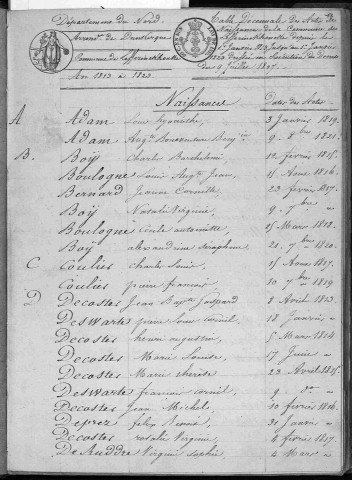 Département du Nord
Arrond.t de Dunkerque
Commune de
An 1813 à 1823.
Table Décennale des Actes de
Naissances de la Commune de
depuis le
1er Janvier 1813 Jusqu'au 1er Janvier
1823 dressée en Exécution du Décret
du 9 Juillet 1807.
Naissances Dates des Actes
A Adam Louis Hyacinthe, 3 Janvier 1819.
Adam Aug.te Bonaventure 9 8bre 1822.
B. Boÿ Charles Barthelemi, 12 février 1815.
Boulogne Louis Aug.te Jean, 15 Aout 1816.
Bernard Jeanne Cornille, 22 février 1817.
Boÿ Natalie Virginie, 9 7bre
Boulogne Cécile antoinette, 15 Mars 1818.
Boÿ alexandrine séraphine, 21 7bre 1820.
C Coulier Charles Louis, 15 Aout 1817.
Coulier pierre françois, 10 7bre 1819
D Decoster Jean Bap.te Gaspard 8 Avril 1813.
Deswarte pierre Louis Corneil, 18 Janvier
Decoster henri augustin, 5 Mars 1814
Decoster Marie Louise, 17 Juin
Decoster Marie thérèse 22 Avril 1815.
Deswarte francois corneil, 9
Decoster Jean Michel, 10 février 1816.
Deprez felix Benoit, 30 Janvier
Decoster rosalie Virginie, 4 février 1817.
De Rudder Virginie sophie, 4 Mars